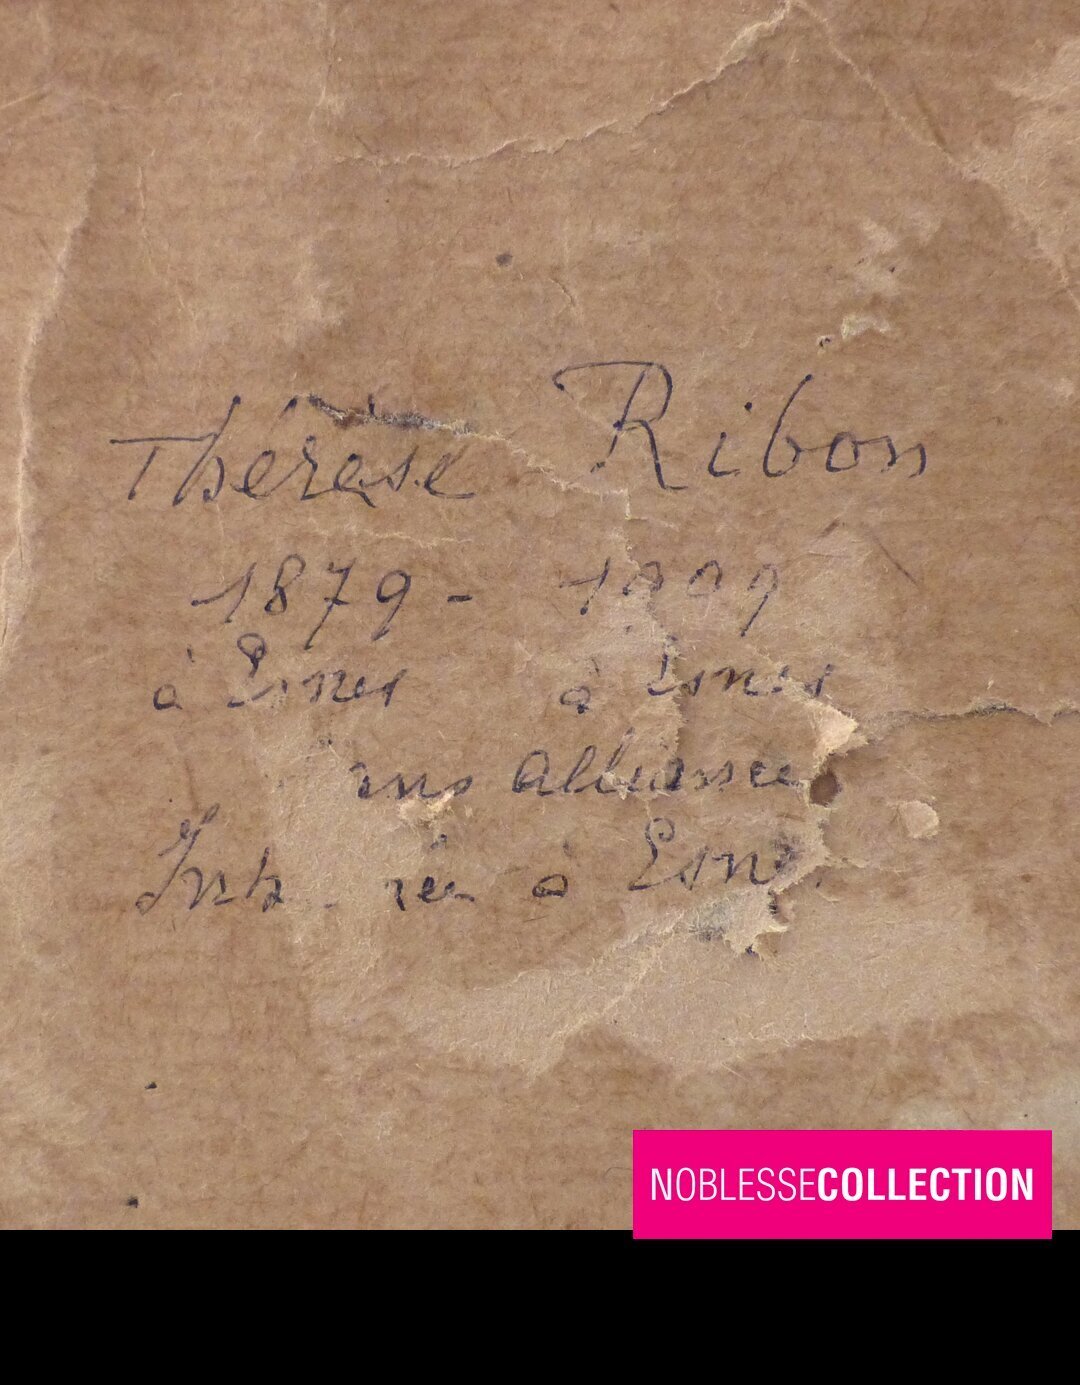 Thérèse Ribon
1879 - 1909
à Esnes à Esnes
ans alliance
à Esn
NOBLESSECOLLECTION